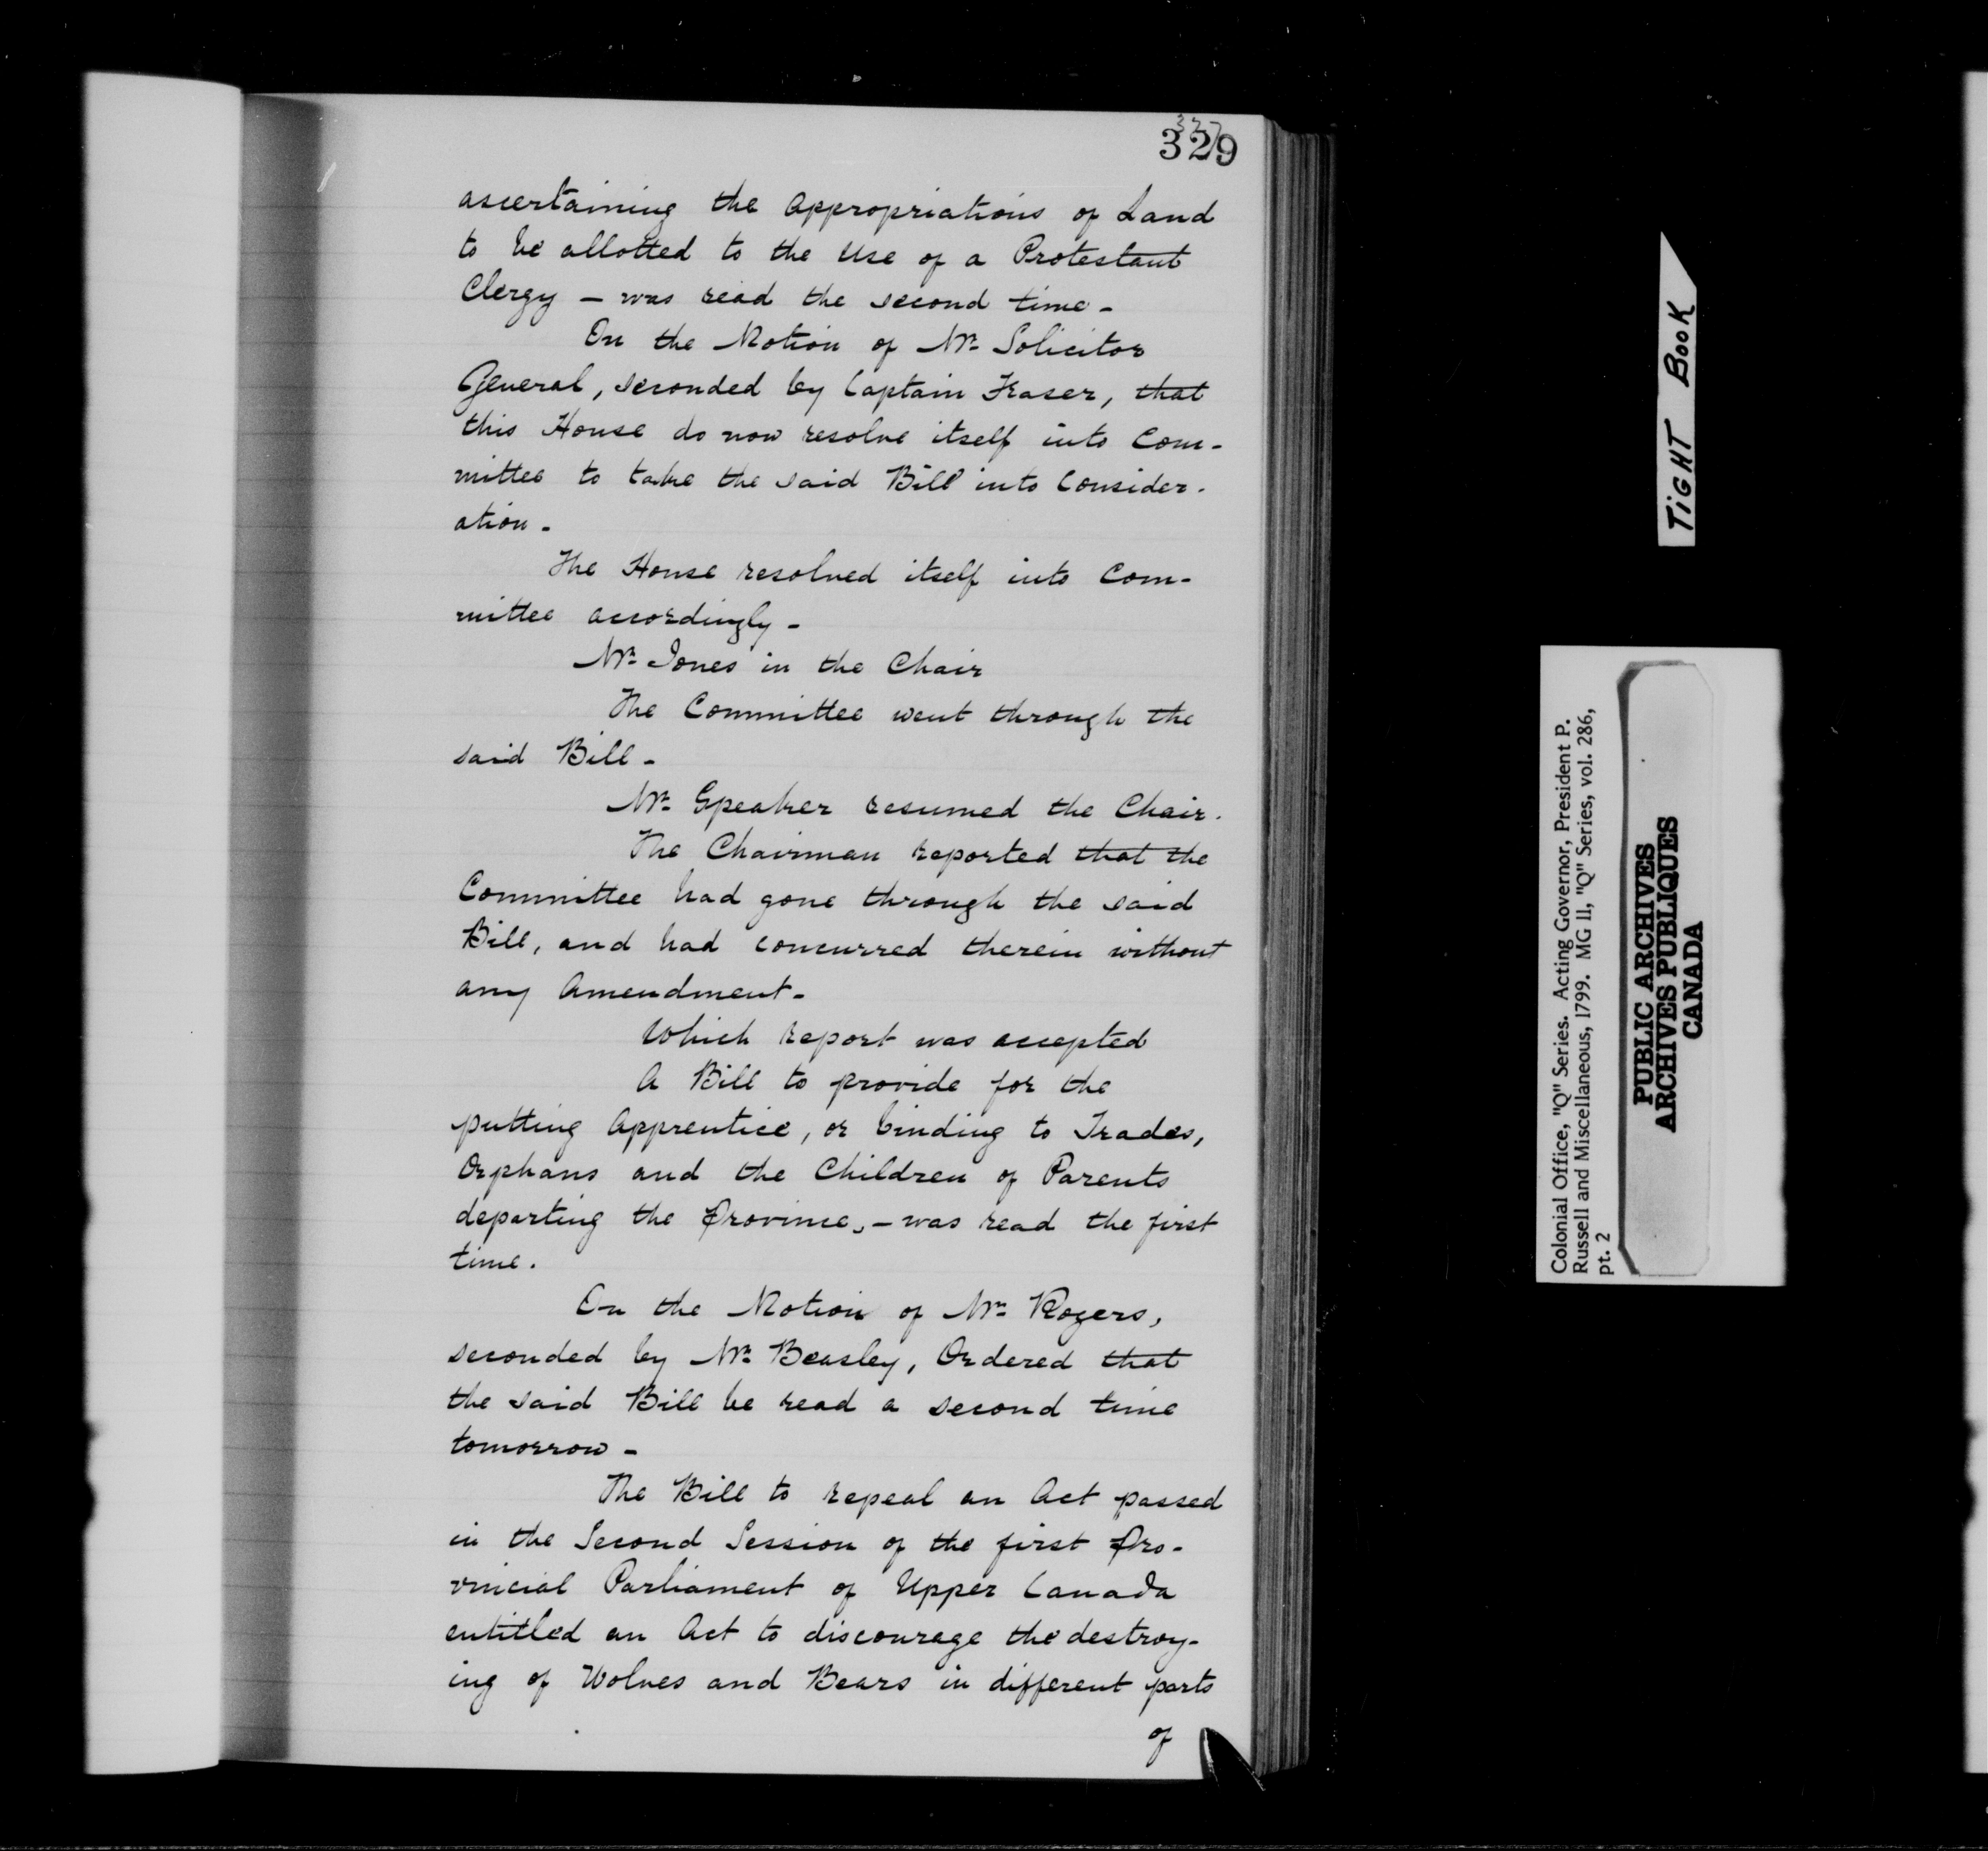 327
329
ascertaining the appropriations of Land
to be allotted to the Use of a Protestant
Clergy – was read the second time –
On the Motion of Mr. Solicitor
General, seconded by Captain Fraser, that
this House do now resolve itself into Com-
mittee to take the said Bill into Consider-
ation –
The House resolved itself into Com-
mittee accordingly –
Mr. Jones in the Chair
The Committee went through the
said Bill –
Mr. Speaker resumed the Chair.
The Chairman reported that the
Committee had gone through the said
Bill, and had concurred therein without
any Amendment –
Which report was accepted
A Bill to provide for the
putting Apprentice, or binding to Trades,
Orphans and the Children of Parents
departing the Province, – was read the first
time.
On the Motion of Mr. Rogers,
seconded by Mr. Beasley, Ordered that
the said Bill be read a second time
tomorrow –
The Bill to repeal an Act passed
in the Second Session of the first Pro-
vincial Parliament of Upper Canada
entitled an Act to discourage the destroy-
ing of Wolves and Bears in different parts
of
TIGHT BOOK
Colonial Office, "Q" Series. Acting Governor, President P.
Russell and Miscellaneous, 1799. MG 11, "Q" Series, vol. 286,
pt. 2
PUBLIC ARCHIVES
ARCHIVES PUBLIQUES
CANADA